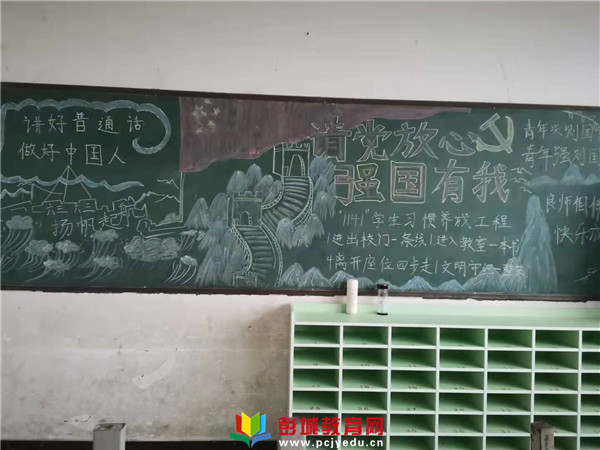 讲好普通话
做好中国人
扬帆起航
请党放心
强国有我
"1141"学生习惯养成工程
1进出校门一条线1进入教室一本书
4离开座位四步走1文明守纪一
青年兴则国
青年强则国
良师相伴
快乐
彭城教育网
www.pcjyedu.cn